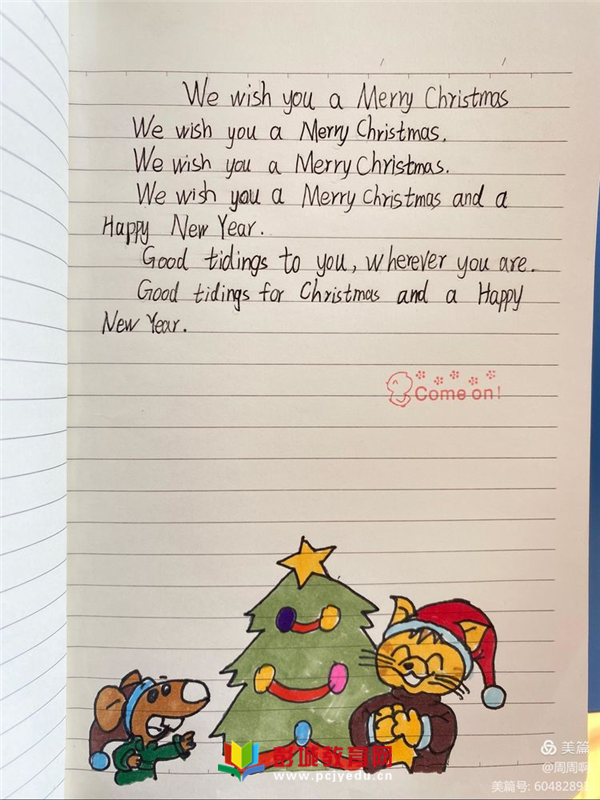 We wish you a Merry Christmas
We wish you a Merry Christmas.
We wish you a Merry Christmas.
We wish you a Merry Christmas and a
Happy New Year.
Good tidings to you, wherever you are.
Good tidings for Christmas and a Happy
New Year.
Come on!
彭城教育网
www.pcjyedu.cn
美篇
@周周啊
美篇号: 6048289